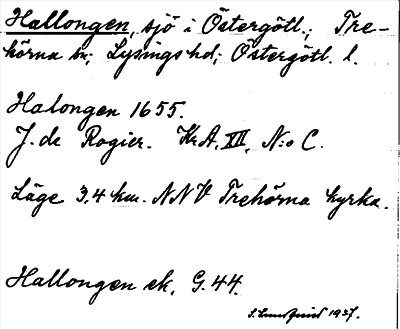 Hallongen, sjö i Östergötl.; Tre-
hörna sn; Lysings hd; Östergötl. l.
Halongen 1655.
J. de Rogier. Kr.A. XII, N:o C.
Läge 3,4 km. NNV Trehörna kyrka.
Hallongen ek. G. 44.
S. Lundquist 1937.